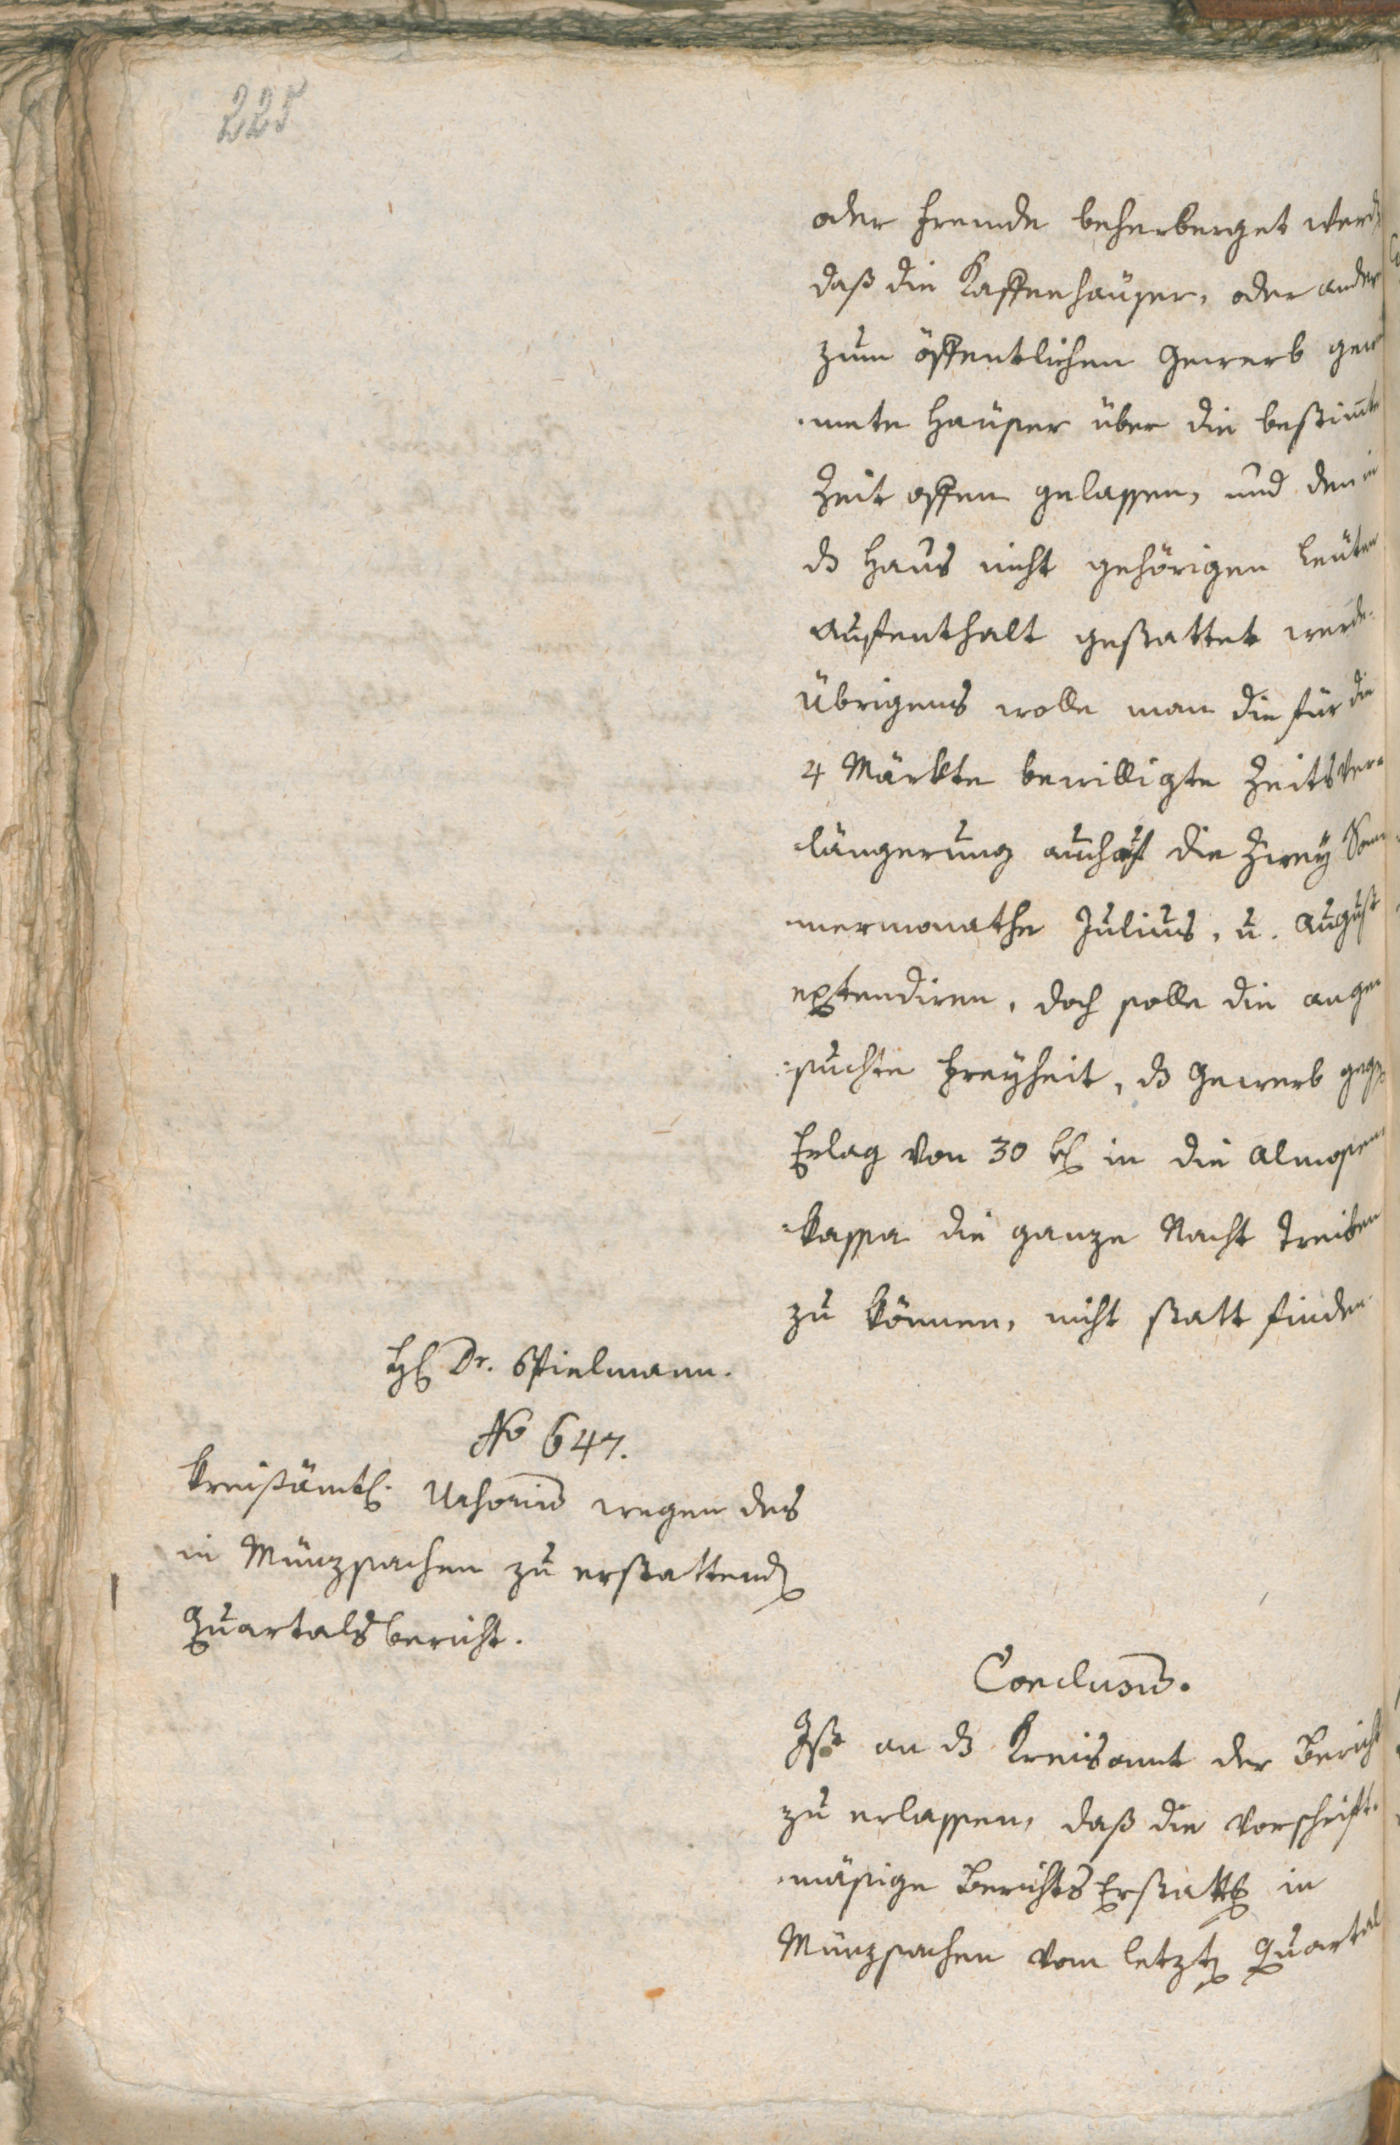 225
oder Fremde beherberget werd
daß die Kaffeehäuser, oder ander
zum öffentlichen Gewerb gew
mete Häuser über die bestimte
Zeit offen gelassen, und den in
ds Haus nicht gehörigen Leüten
Aufenthalt gestattet werde.
Übrigens wolle man die für die
4 Märkte bewilligte Zeitsver-
längerung auch auf die Zwey Som
mermonathe Julius, u. August
extendiren, doch solle die ange
suchte Freyheit, ds Gewerb geg
Erlag von 30 in die Almosen
kassa die ganze Nacht treiben
zu können, nicht statt finden.
H Dr. Spielmann.
No 647.
Kreißämtl. wegen des
in Münzsachen zu erstattend
Quartalsbericht.
Conclusum.
Ist an ds Kreisamt der Bericht
zu erlassen, daß die vorschrift-
mäsige Berichts Erstattg in
Münzsachen vom letzt Quartal